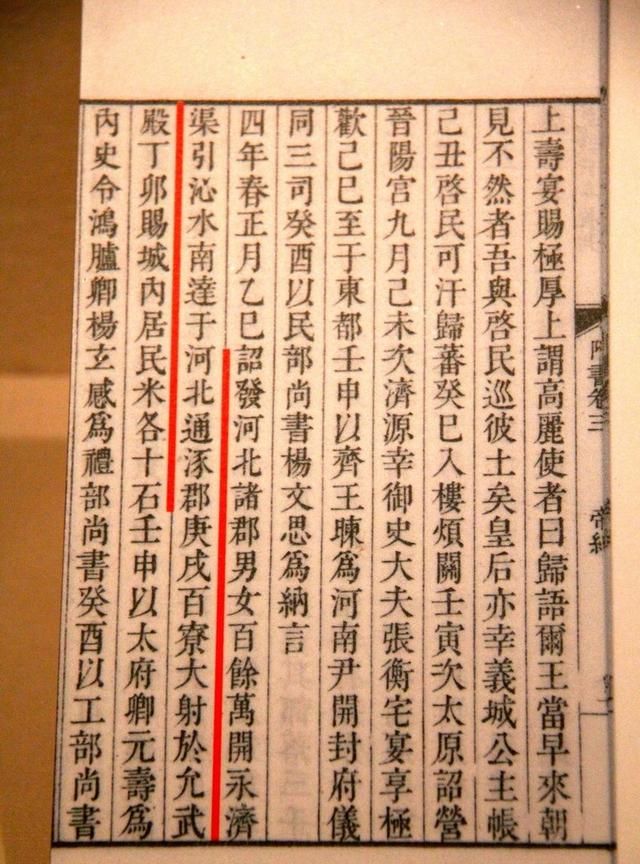 上壽宴賜極厚上謂高麗使者曰歸語爾王當早來朝
見不然者吾與啓民巡彼土矣皇后亦幸義城公主帳
己丑啓民可汗歸蕃癸巳入樓煩關壬寅次太原詔營
晉陽宮九月己未次濟源幸御史大夫張衡宅宴享極
歡己巳至于東都壬申以齊王暕爲河南尹開封府儀
同三司癸酉以民部尚書楊文思爲納言
四年春正月乙巳詔發河北諸郡男女百餘萬開永濟
渠引沁水南達于河北通涿郡庚戌百寮大射於允武
殿丁卯賜城內居民米各十石壬申以太府卿元壽爲
內史令鴻臚卿楊玄感爲禮部尚書癸酉以工部尚書